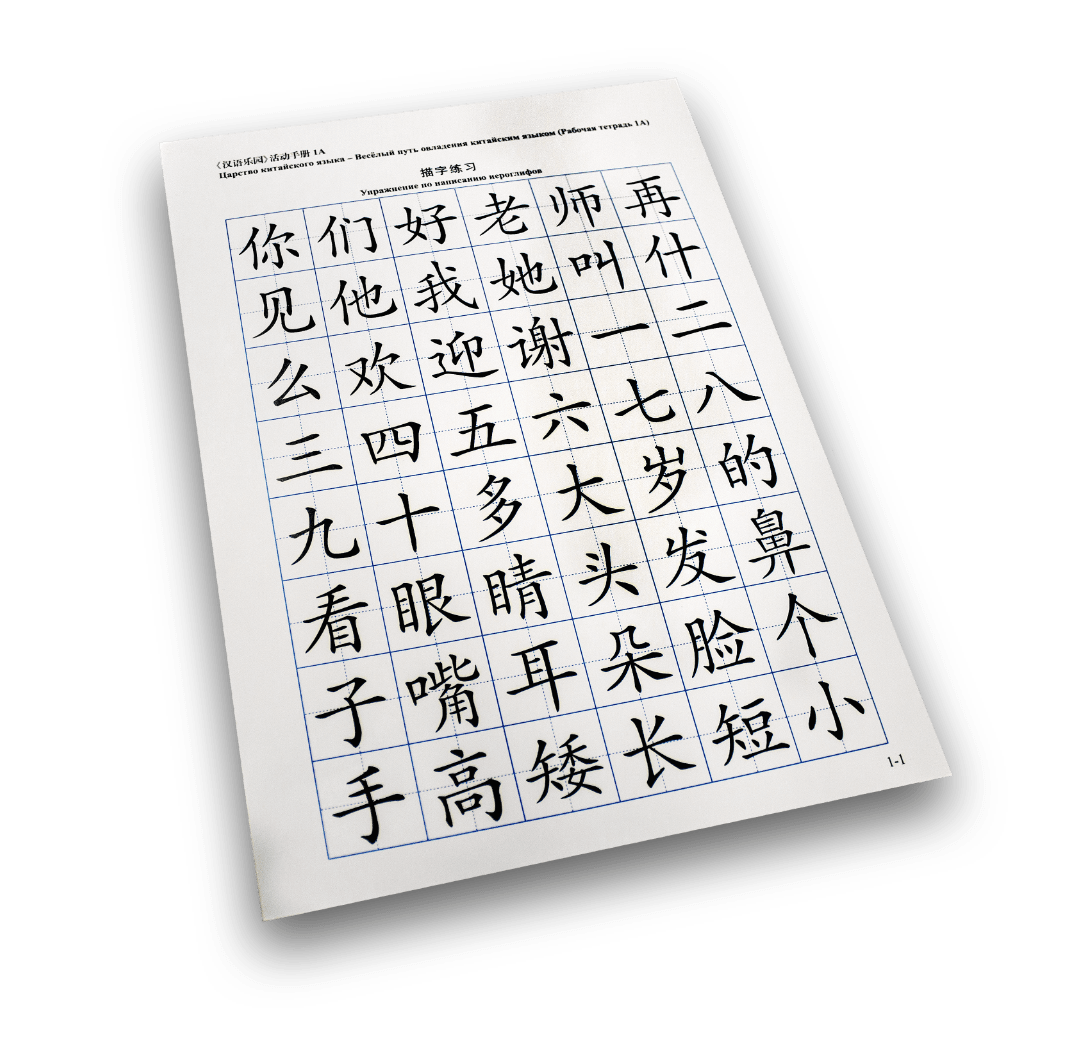 《汉语乐园》活动手册 1A
Царство китайского языка – Весёлый путь овладения китайским языком (Рабочая тетрадь 1A)
描字练习
Упражнение по написанию иероглифов
你们好老师再
见他我她叫什
么欢迎谢一二
三四五六七八
九十多大岁的
看眼睛头发鼻
子嘴耳朵脸个
手高矮长短小
1-1